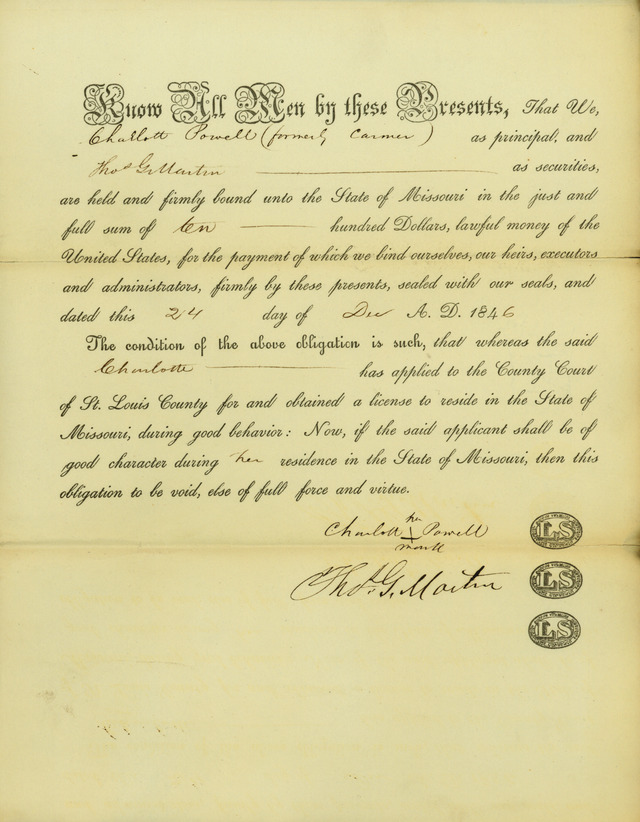 Know All Men by these Presents, That We,
Charlott Powell (formerly Carmer) as principal, and
Thos G. Martin as securities,
are held and firmly bound unto the State of Missouri in the just and
full sum of ten hundred Dollars, lawful money of the
United States, for the payment of which we bind ourselves, our heirs, executors
and administrators, firmly by these presents, sealed with our seals, and
dated this 24 day of Dec A. D. 1846
The condition of the above obligation is such, that whereas the said
Charlotte has applied to the County Court
of St. Louis County for and obtained a license to reside in the State of
Missouri, during good behavior: Now, if the said applicant shall be of
good character during her residence in the State of Missouri, then this
obligation to be void, else of full force and virtue.
her
Charlott X Powell
mark
LS
Thos. G. Martin
LS
LS